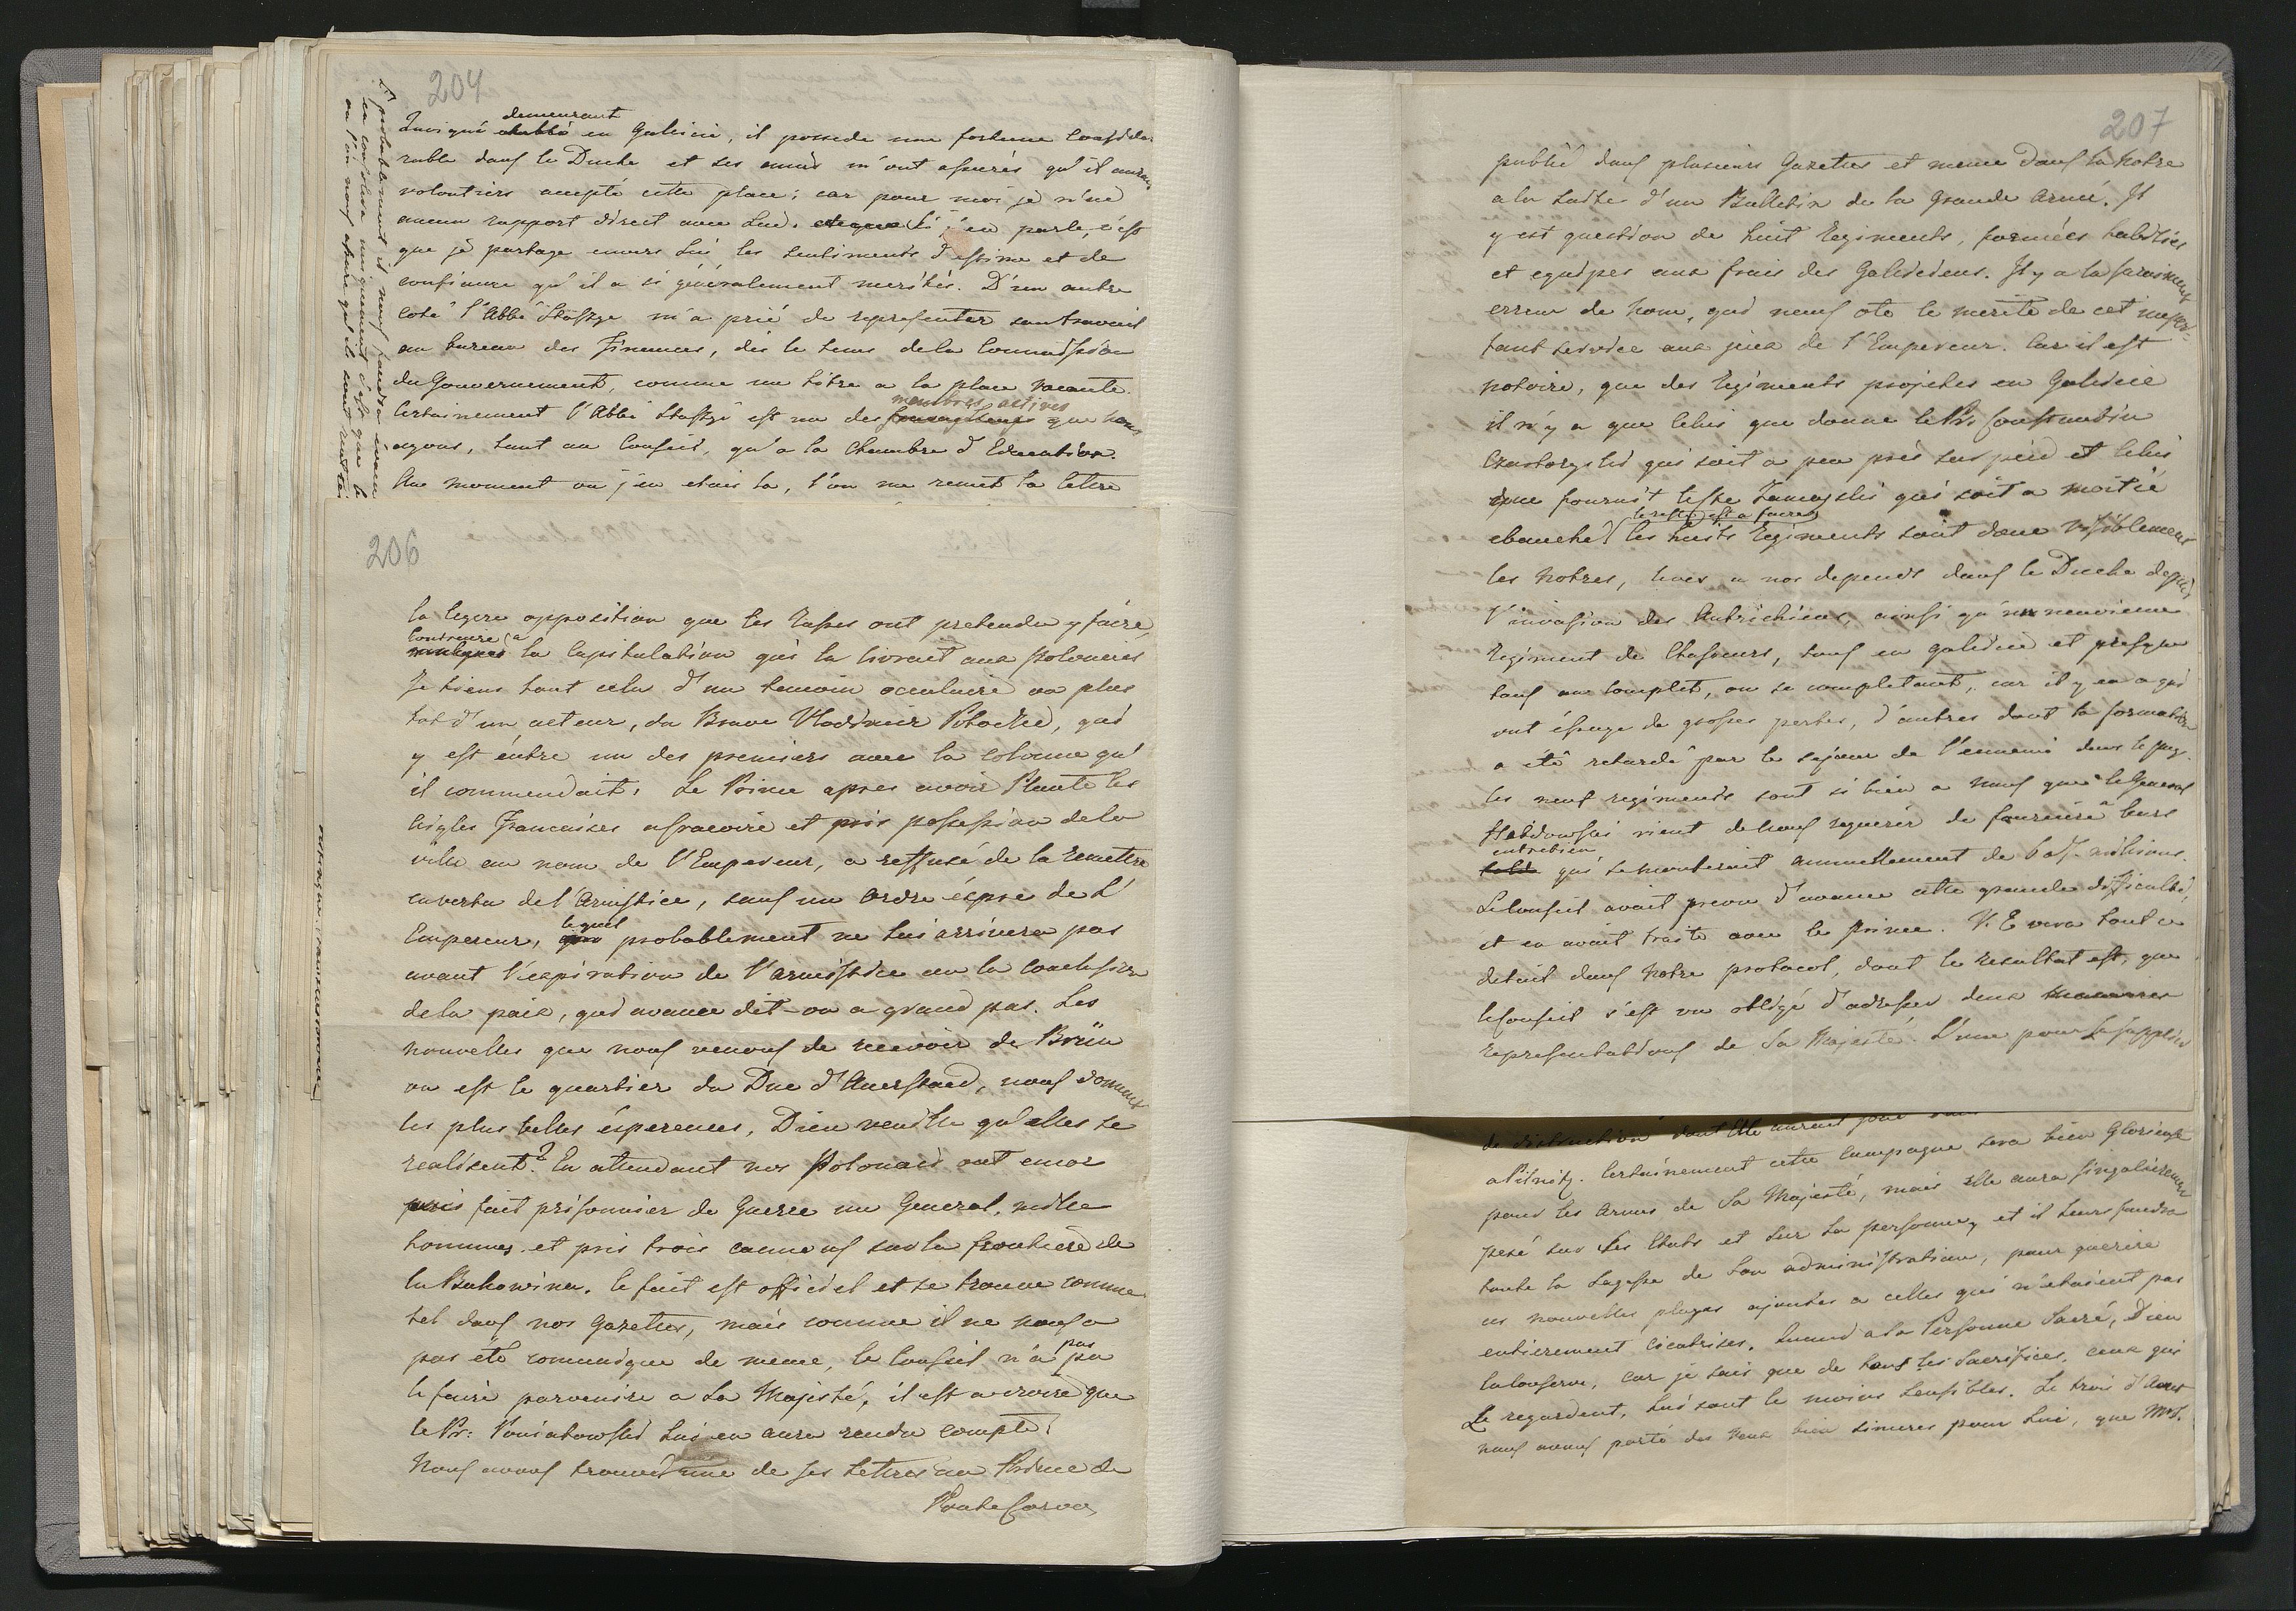 204
demeurant
Quoique etabli en Galicie, il possede une fortune conside-
rable dans le Duché et ses amis m'ont assurés qu'il aurait
volontiers accepté cette place; car pour moi je n'ai
aucun rapport direct avec Lui. et que Si j'en parle, c'est
que je partage envers Lui les sentiments d'estime et de
confiance qu'il a si généralement merités. D'un autre
coté l'Abbé Staszyc m'a prié de representer son travail
au bureau des Finances, dès le tems de la Commission
du Gouvernement, comme un titre a la place vacante.
membres actives
Certainement l'Abbé Staszyc est un des que nous
ayons, tant au Conseil, qu'a la Chambre d'Education.
Au moment ou j'en etais la, l'on me remet la lettre
et probablement il nous faudra
en conseiller uniquement c'est que le
ou l'on nous assure qu'ils sont rentrés
206
la legere opposition que les Russes ont pretendu y faire,
contraire a
la Capitulation qui la livrait aux Polonais
Je tiens tout cela d'un temoin occulaire ou plus
tot d'un acteur, du Brave Vladimir Potocki, qui
y est entré un des premiers avec la colonne qu'
il commendait. Le Prince apres avoir Planté les
Aigles Francaises a Cracovie et pris possession de la
ville au nom de l'Empereur, a reffusé de la remettre
en vertu de l'Armistice, sauf un ordre éxpre de L'
Empereur, lequel probablement ne lui arrivera pas
avant l'expiration de l'armistice ou la conclusion
de la paix, qui avance dit-on a grand pas. Les
nouvelles que nous venons de recevoir de Brün
ou est le quartier du Duc d'Auerstaed, nous donnent
les plus belles ésperences, Dieu veuille qu'elles se
realisent? En attendant nos Polonais ont encor
pris fait prisonnier de Guerre un General, mille
hommes et pris trois canons sur la frontiere de
la Bukowine. le fait est officiel et se trouve comme
tel dans nos Gazettes, mais comme il ne nous a
pas été communiqué de meme, le Conseil n'a pas pu
le faire parvenire a Sa Majesté, il est a croire que
le Pr: Poniatowski Lui en aura rendu compte.
Nous avons trouvé une de ses lettres au Prince de
Ponte Corvo,
207
publié dans plusieurs Gazettes et meme dans la notre
a la suite d'un Bulletin de la Grande Armée. Il
y est question de huit Regiments, formés habillés
et equipés aux frais des Galiciens. Il y a la surement
erreur de nom, qui nous ote le merite de cet impor-
tant service aux yeux de l'Empereur. Car il est
notoire, que des Regiments projetés en Galicie
il n'y a que celui que donne le Pr: Constantin
Czartoryski qui soit a peu près sur pied et celui
que fournit le Cte Zamoyski qui soit a moitié
le reste est a faire
ebauché les huits Regiments sont donc visiblement
les notres, levés a nos depends dans le Duché depuis
l'invasion des Autrichiens, ainsi qu'un neuvieme
Regiment de Chasseurs, tous en Galicie et presque
tous au complet, ou se completant, car il y en a qui
ont éssuyé de grosses pertes, d'autres dont la formation
a été retardé par le sejour de l'ennemi dans le pays.
les neuf regiments sont si bien a nous que le General
Hebdowski vient de nous requerir de fournire a leur
entretien
qui se monterait annuellement de 6 a 7 millions.
Le Conseil avait prevu d'avance cette grande difficulté,
et en avait traité avec le Prince. V. E verra tout ce
detail dans notre protocol, dont le resultat est, que
le Conseil s'est vu obligé d'adresser deux
representations de Sa Majesté. L'une pour La supplier
de distinction dont Elle
a Pilnitz. Certainement cette Campagne sera bien Glorieuse
pour les Armes de Sa Majesté, mais elle aura singulierement
pesé sur Ses Etats et sur Sa personne, et il leurs faudra
toute la Sagesse de Son administration, pour guerire
ces nouvelles playes ajoutés a celles qui n'etaient pas
entierement cicatrisés. Quand a Sa Personne Sacré, Dieu
la conserve, car je sais que de tous les Sacrifices, ceux qui
Le regardent, Lui sont le moins sensibles. Le trois d'Aout
nous avons porté des Vœux bien sinceres pour Lui, que Mgr.